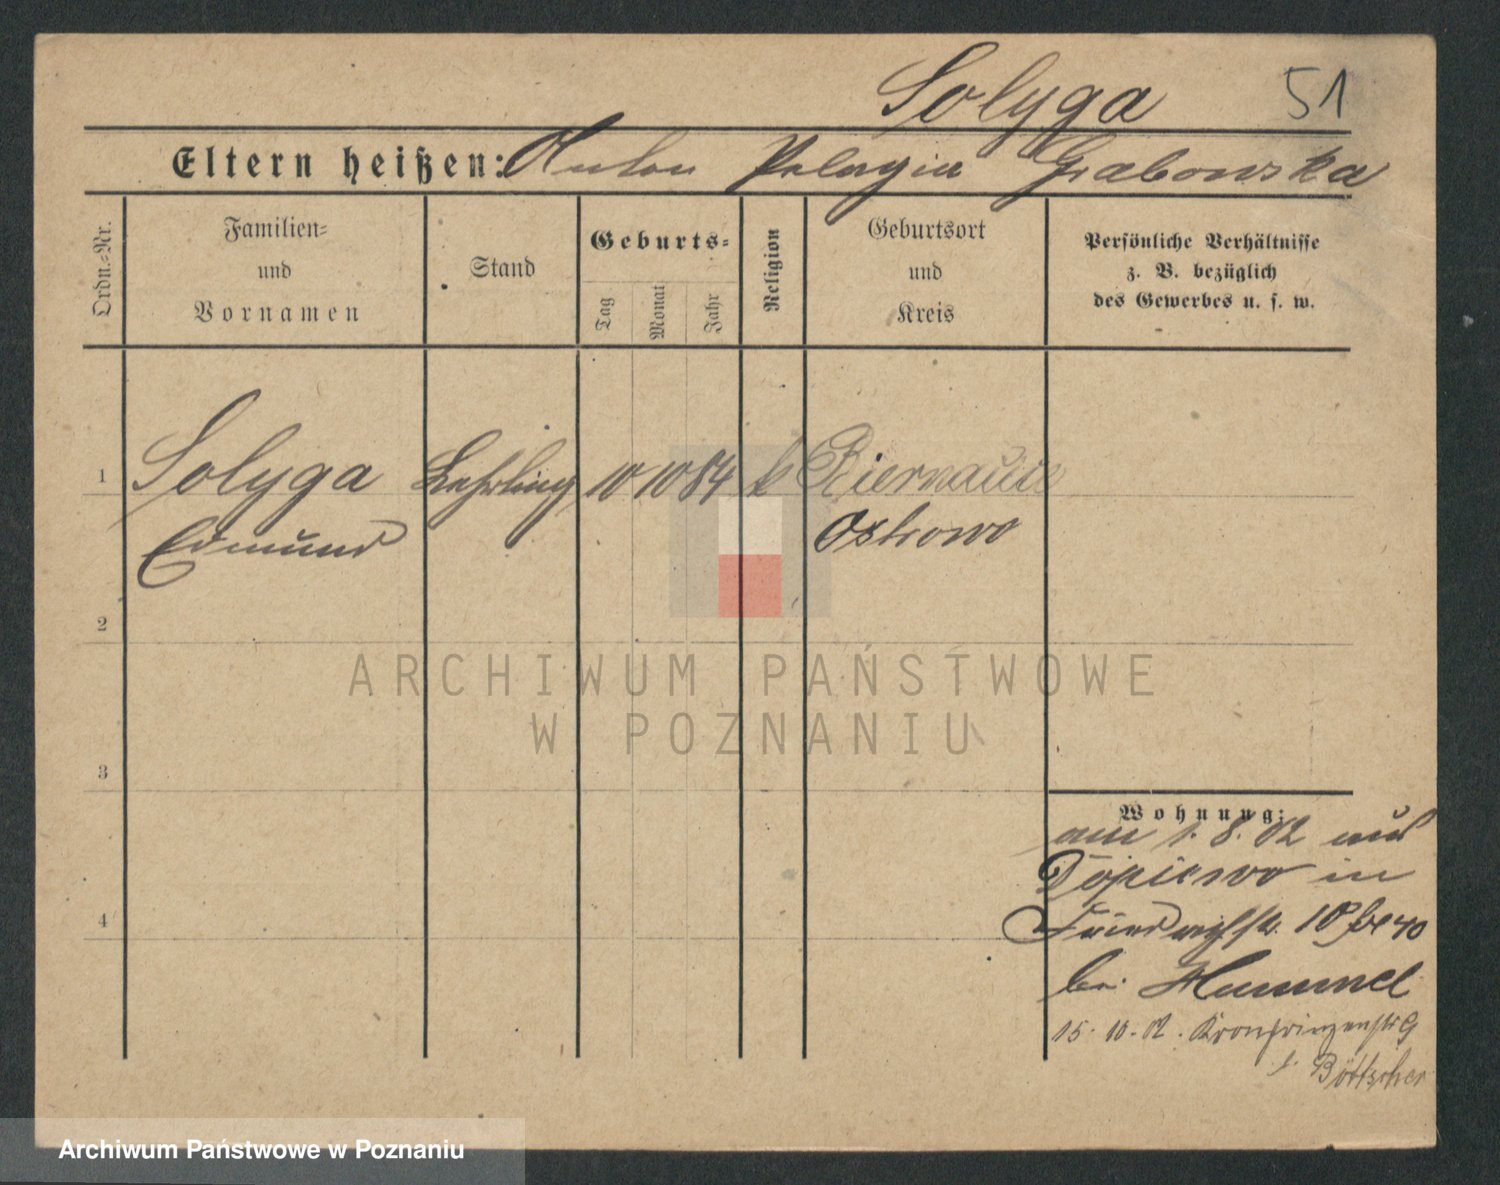 Solyga 51
Eltern heißen: Anton Pelagia Grabowska
Ordn.-Nr.
Familien-
und
Vornamen
Stand
Geburts-
Tag
Monat
Jahr
Religion
Geburtsort
und
Kreis
Persönliche Verhältnisse
z. B. bezüglich
des Gewerbes u. s. w.
1 Solyga Lehrling 10 10 84 k
Edmund Ostrowo
2
3
4
Wohnung:
am 1. 8. 02 aus
in
10
bei Hummel
15. 10. 02. Kronprinzenstr
b. Böttscher
ARCHIWUM PAŃSTWOWE
W POZNANIU
Archiwum Państwowe w Poznaniu